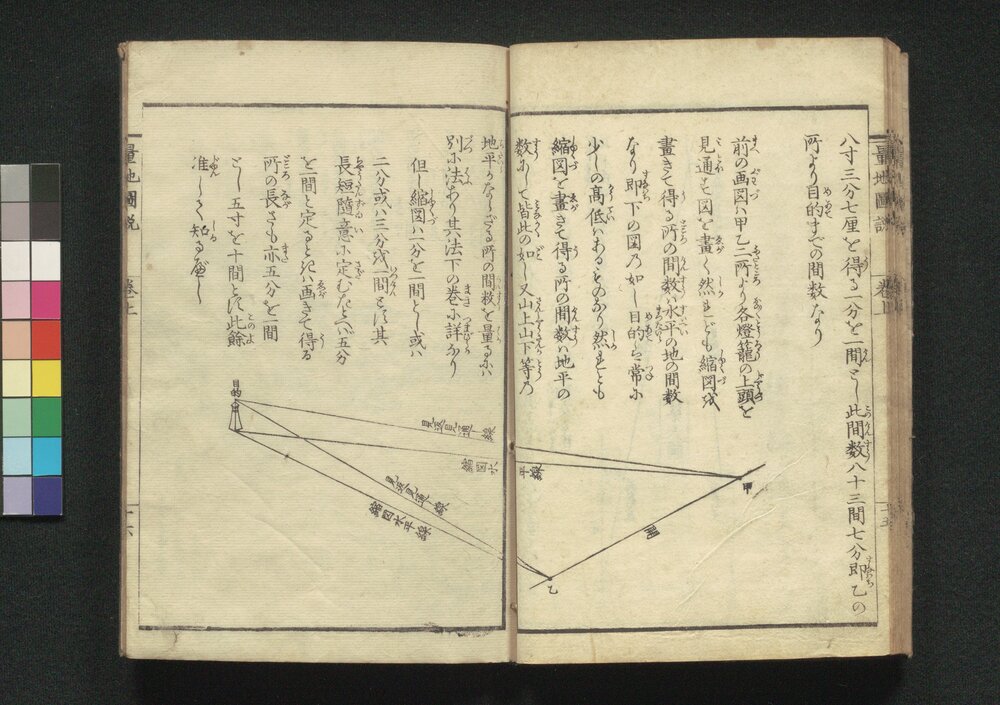 八寸三分七厘を得る一分を一間とし此間数八十三間七分即乙の
所より目的までの間数なり
前の画図ハ甲乙二所より各燈籠の上頭を
見通して図を畫く然れども縮図或
畫きて得る所の間数ハ水平の地の間数
なり即下の図乃如し目的ハ常に
少しの高低ハあるものなり然れとも
縮図を畫きて得る所の間数ハ地平の
数にして皆此の如し又山上山下等乃
地平ならざる所の間数を量るにハ
別に法あり其法下の巻に詳なり
但し縮図ハ一分を一間とし或ハ
二分或ハ三分或一間とす其
長短随意に定むたとへバ五分
を一間と定るときハ画きて得る
所の長さも亦五分を一間
とし五寸を十間とす此餘
准しく知る屋し
甲
乙
間
目的
見渡見通線
縮図水平線
見渡見通線
縮図水平線
量地圖説
巻上
十五
量地圖説
巻上
十六